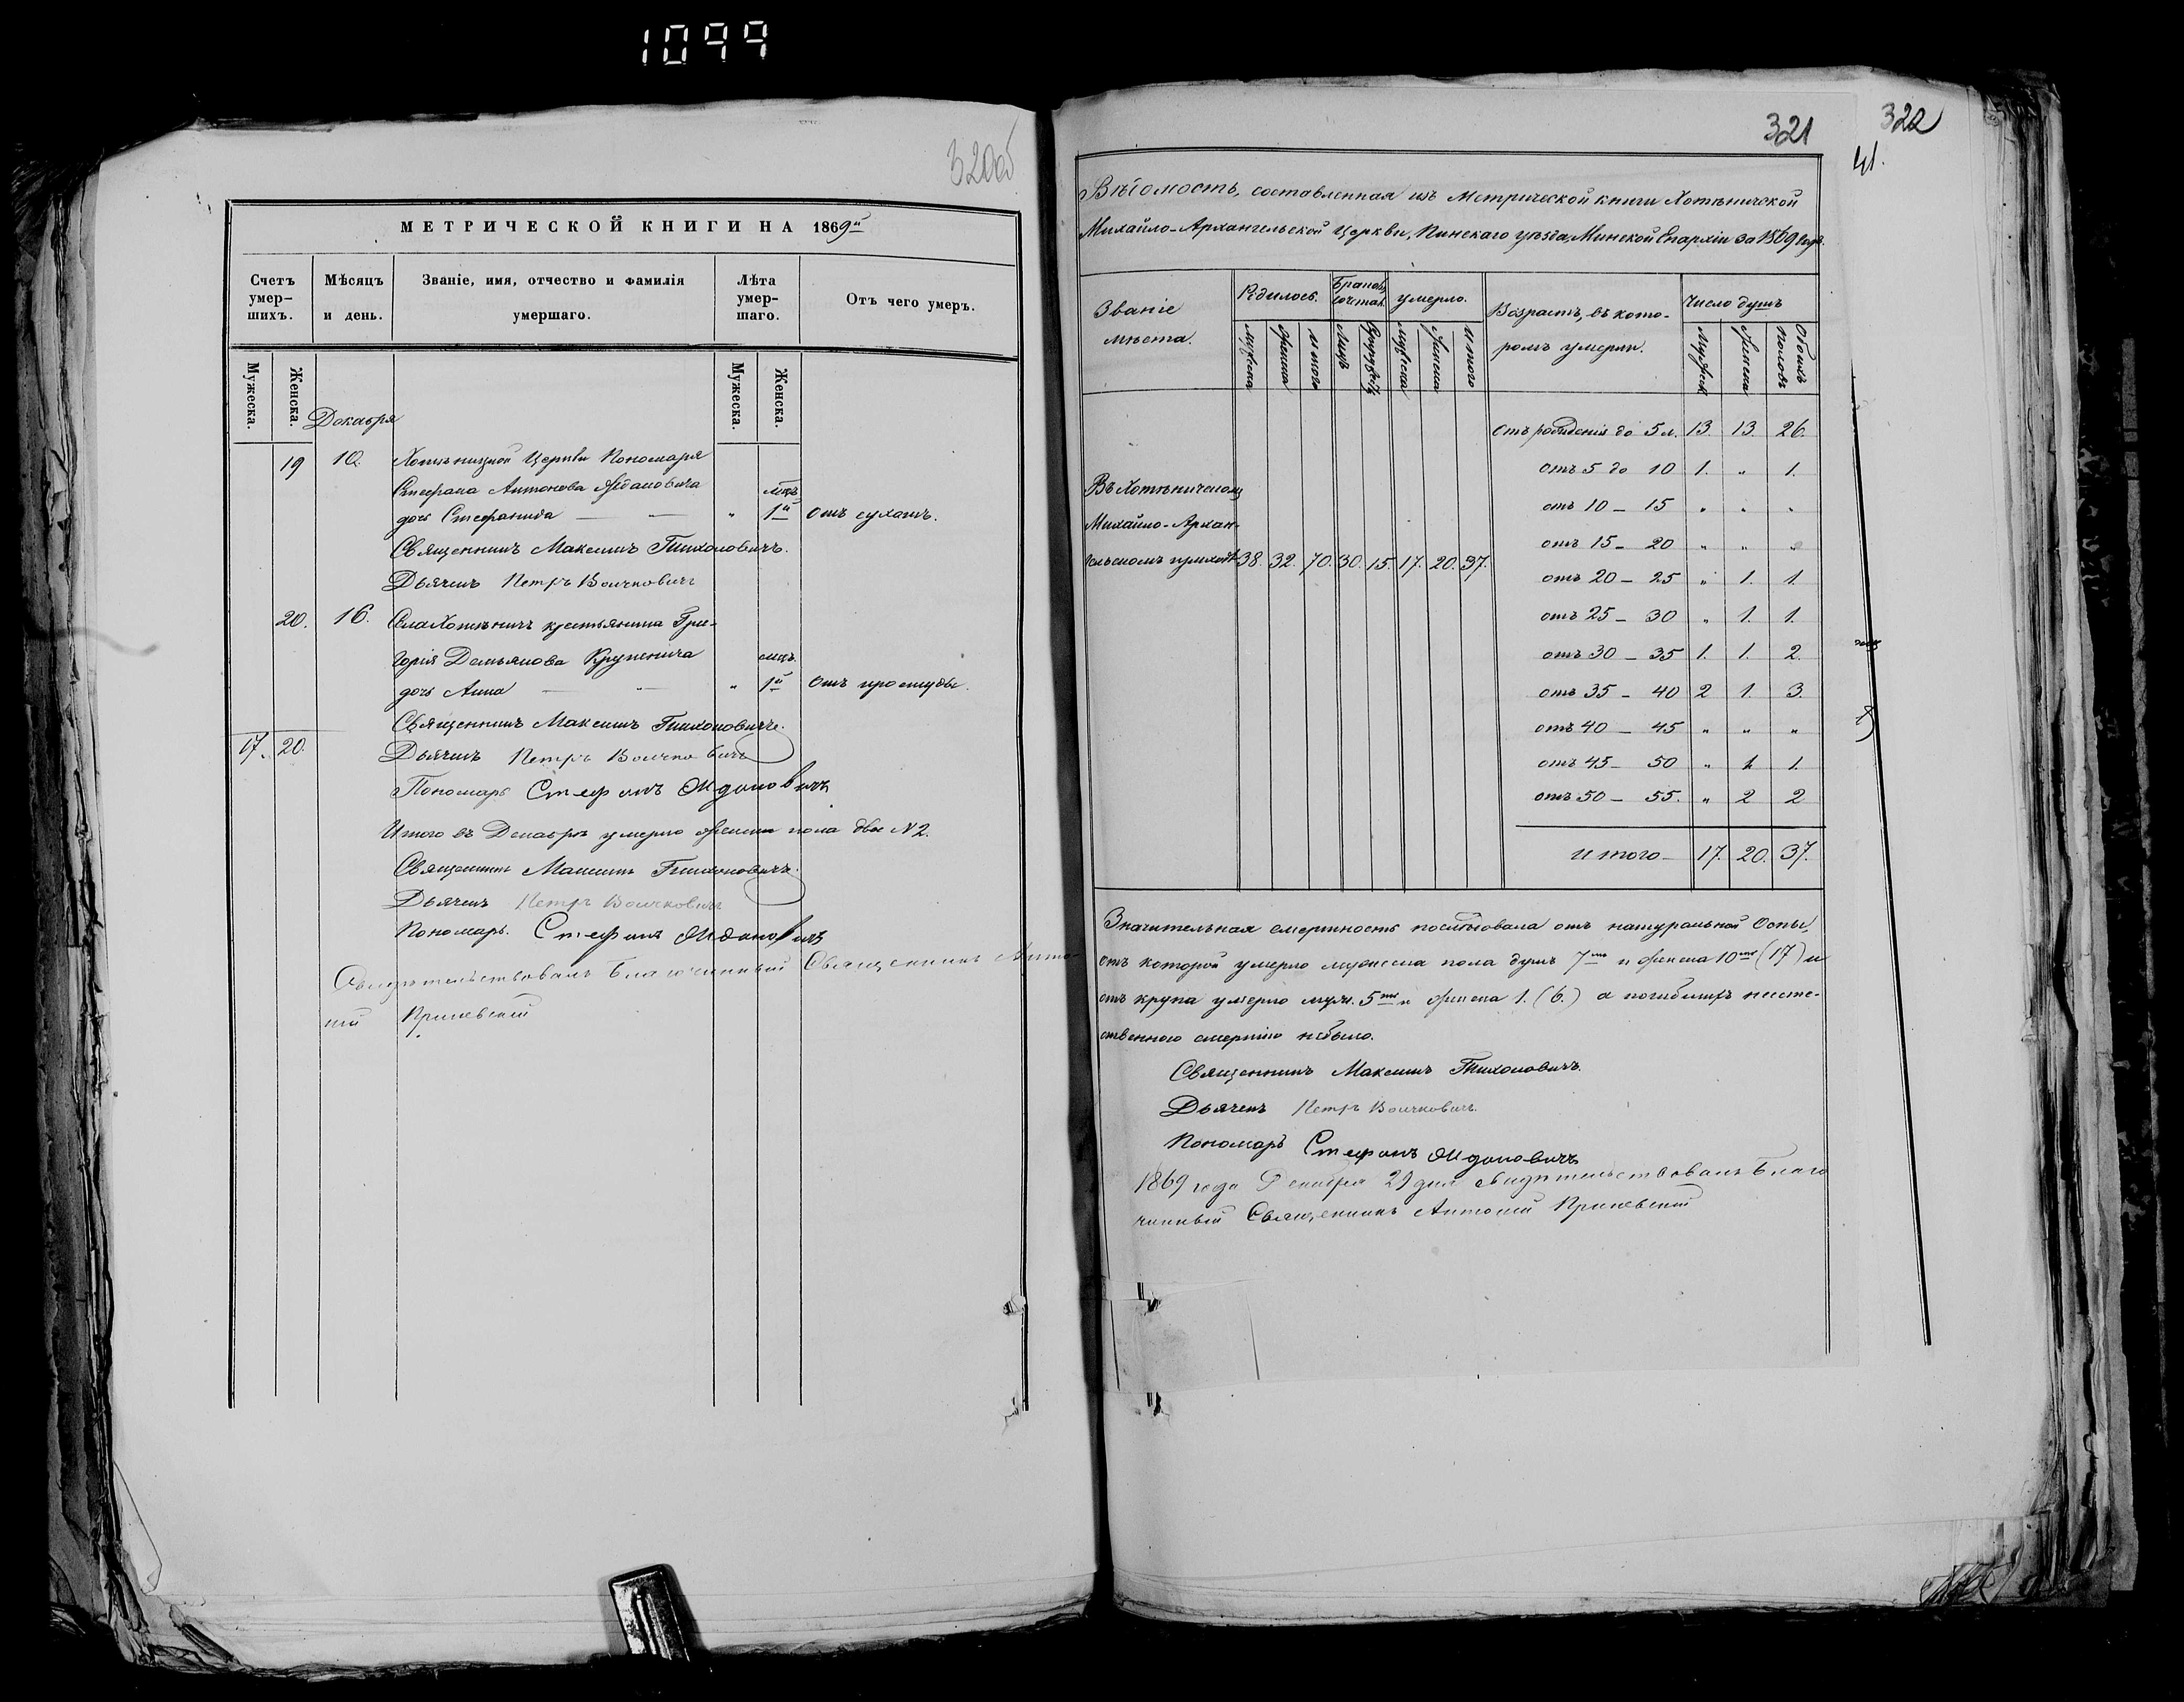 1099
320об
МЕТРИЧЕСКОЙ КНИГИ НА 1869й
Счетъ умер-шихъ.
Мѣсяцъ и день.
Званіе, имя, отчество и фамилія умершаго.
Лѣта умер-шаго.
Отъ чего умеръ.
Мужеска. Женска. Мужеска. Женска.
Декабря
19 10. Хотѣницкой Церкви Пономаря
Стефана Антонова Ждановича мцъ
дочь Стефанида — — " 1й отъ сухотъ.
Священникъ Максимъ Тихоновичъ.
Дьячекъ Петръ Волчковичъ
20. 16. Села Хотѣничъ крестьянина Гри-
горія Демьянова Крупенича мцъ.
дочь Анна — — " 1й Отъ простуды.
Священникъ Максимъ Тихоновичъ.
17. 20. Дьячекъ Петръ Волчковичъ
Пономарь Стефанъ Ждановичъ
Итого въ Декабрѣ умерло женска пола двѣ N 2.
Священникъ Максимъ Тихоновичъ.
Дьячекъ Петръ Волчковичъ
Пономарь. Стефанъ Ждановичъ
Свидѣтельствовалъ Благочинный Священникъ Анто-
ній
321
322
41.
Вѣдомость, составленная изъ Метрической книги Хотѣничской
Михайло-Архангельской Церкви, Пинскаго уѣзда, Минской Епархіи за 1869 годъ.
Званіе мѣста.
Родилось.
Браковъ сочетан.
умерло.
Возрастъ, въ кото-ромъ умерли.
Число душъ
Мужеска Женска Итого Лицъ Мужеска Женска Итого Мужеск Женска Обоихъ Половъ
отъ рожденія до 5 л. 13. 13. 26.
отъ 5 до 10 1. " 1.
Въ Хотѣничскомъ
отъ 10 — 15 " " "
Михайло-Архан-
отъ 15 — 20 " " "
гельскомъ приходѣ 38. 32. 70. 30. 15. 17. 20. 37.
отъ 20 — 25 " 1. 1.
отъ 25 — 30 " 1. 1.
отъ 30 — 35 1. 1. 2.
отъ 35 — 40 2 1. 3.
отъ 40 — 45 " " "
отъ 45 — 50 " 1 1.
отъ 50 — 55. " 2 2
итого — 17. 20. 37.
Значительная смертность послѣдовала отъ натуральной Оспы,
отъ которой умерло мужеска пола душъ 7мь и женска 10ть (17) и
отъ крупа умерло муж. 5ть и женска 1. (6.) а погибшихъ несте-
ственною смертію небыло.
Священникъ Максимъ Тихоновичъ.
Дьячекъ Петръ Волчковичъ.
Пономарь Стефанъ Ждановичъ
1869 года Декабря 29 дня свидѣтельствовалъ Благо
чинный Священникъ Антоній